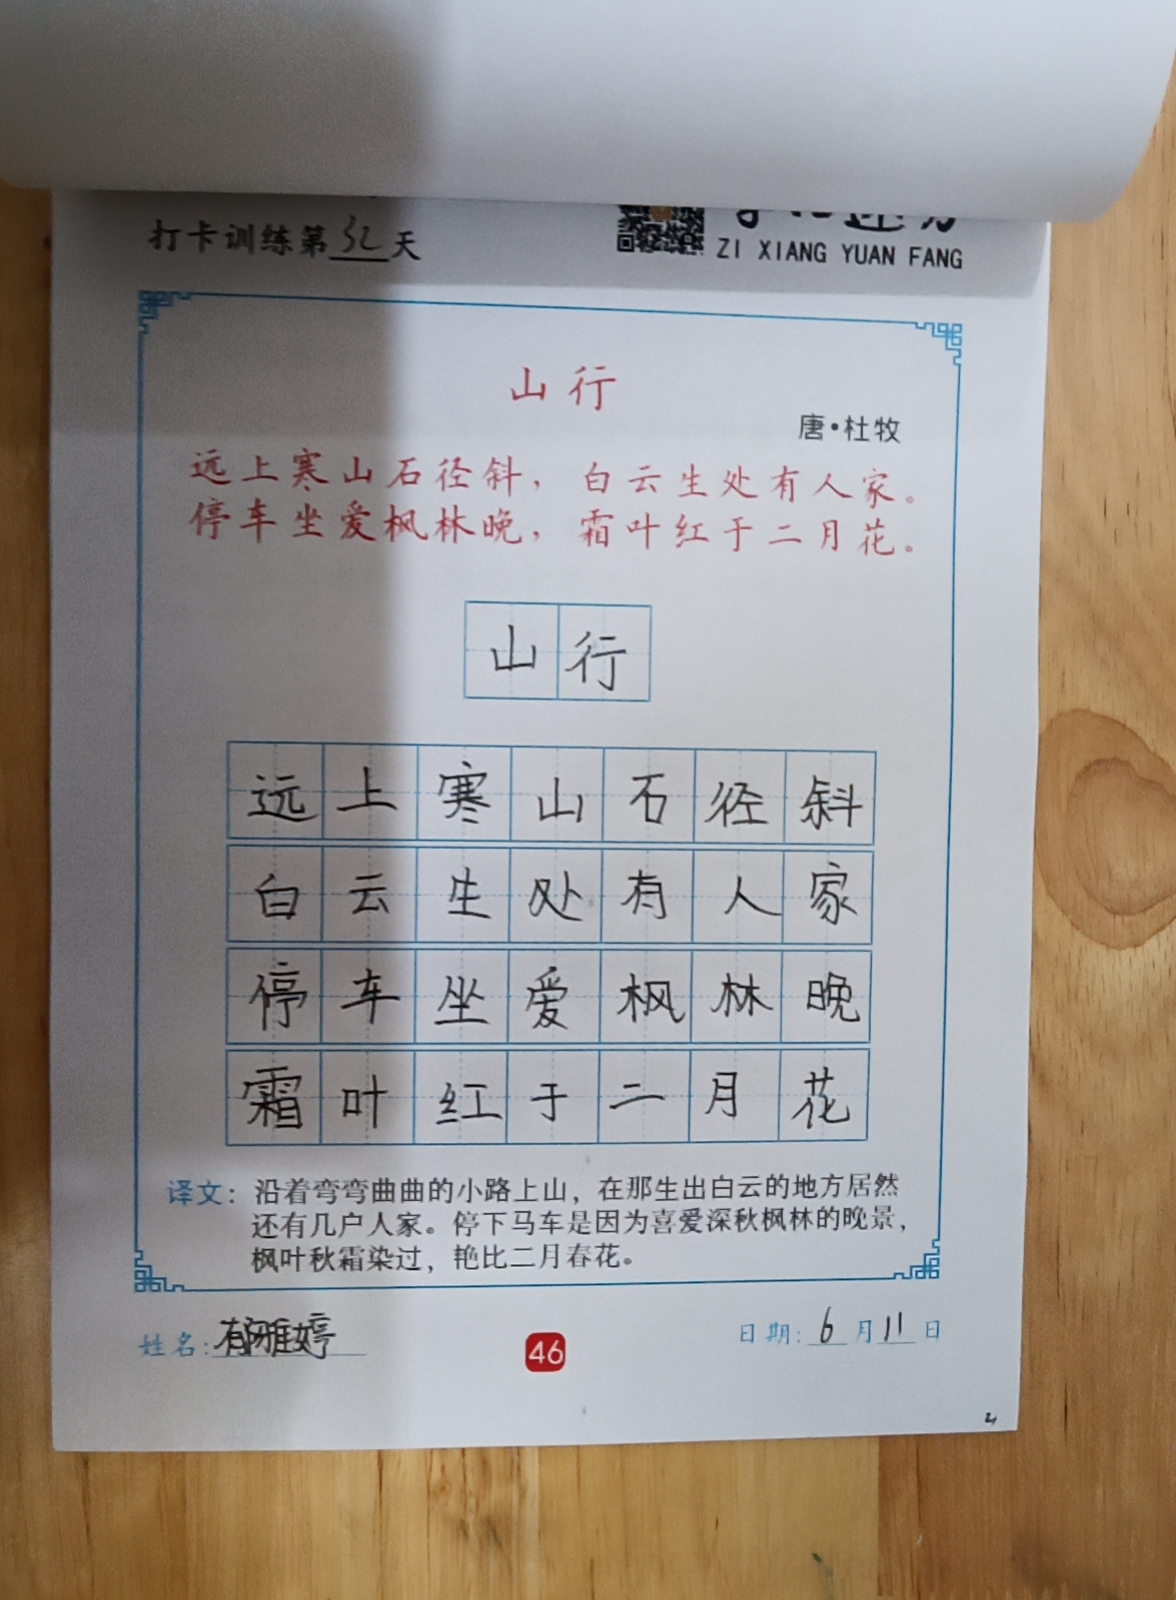 打卡训练第32天
ZI XIANG YUAN FANG
山行
唐·杜牧
远上寒山石径斜，白云生处有人家。
停车坐爱枫林晚，霜叶红于二月花。
山行
远上寒山石径斜
白云生处有人家
停车坐爱枫林晚
霜叶红于二月花
译文：沿着弯弯曲曲的小路上山，在那生出白云的地方居然
还有几户人家。停下马车是因为喜爱深秋枫林的晚景，
枫叶秋霜染过，艳比二月春花。
姓名：郁雅婷
46
日期：6月11日